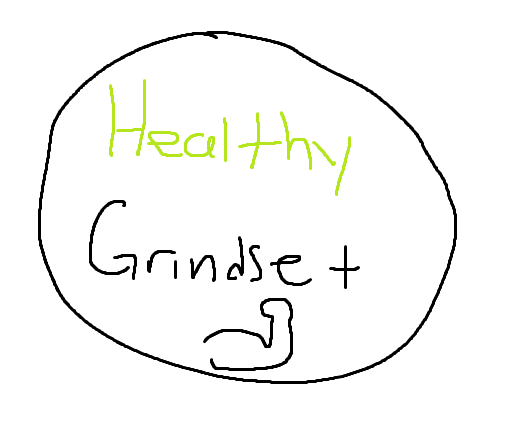 Healthy
Grindset